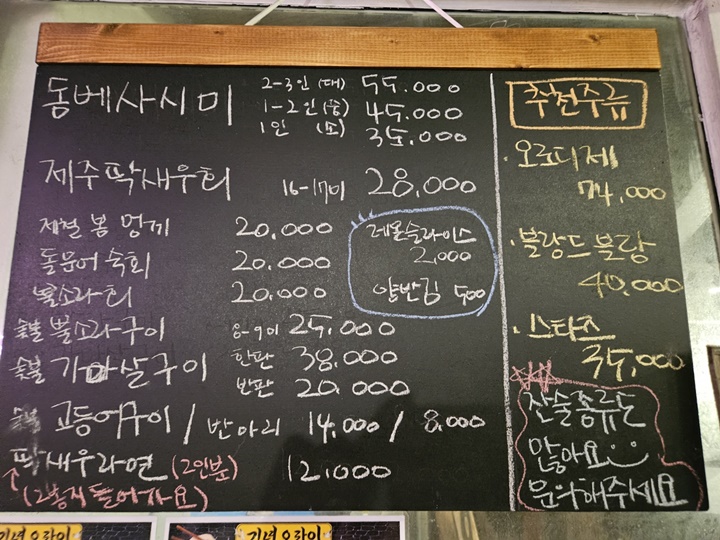 동베사시미 2-3인 (대) 55.000
1-2인 (중) 45.000
1인 (소) 35.000
제주딱새우회 16-17미 28,000
제철 봄 멍게 20.000
돌문어 숙회 20.000
뿔소라회 20.000
레몬슬라이스
2,000
양반김 500
숯불 뿔소라구이 8-9미 25.000
숯불 가마살구이 한판 38,000
반판 20.000
고등어구이 / 반마리 14,000 / 8,000
딱새우라면 (2인분) 12,000
추천주류
· 오르디제
74,000
· 블랑드블랑
40,000
· 스타즈
35,000
잔술종류도
많아요
문의해주세요
기념우라이